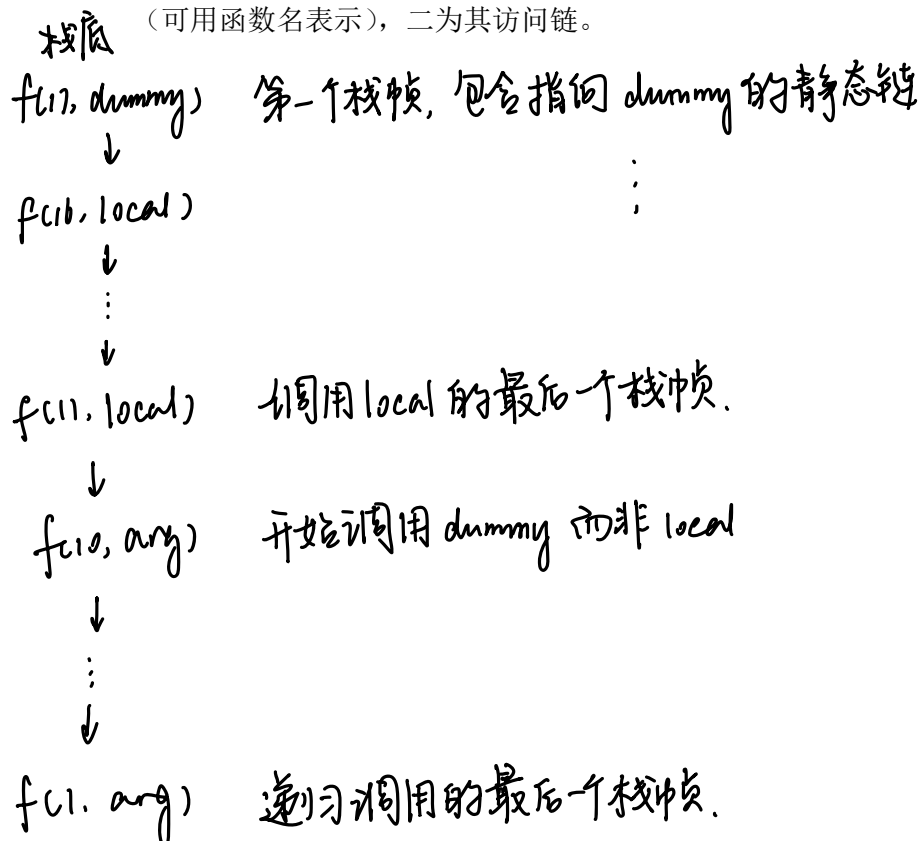 （可用函数名表示），二为其访问链。
栈底
f(17, dummy) 第一个栈帧, 包含指向 dummy 的静态链
↓
f(16, local)
⋮
↓
⋮
↓
f(11, local) 调用 local 的最后一个栈帧.
↓
f(10, arg) 开始调用 dummy 而非 local
↓
⋮
↓
f(1, arg) 递归调用的最后一个栈帧.